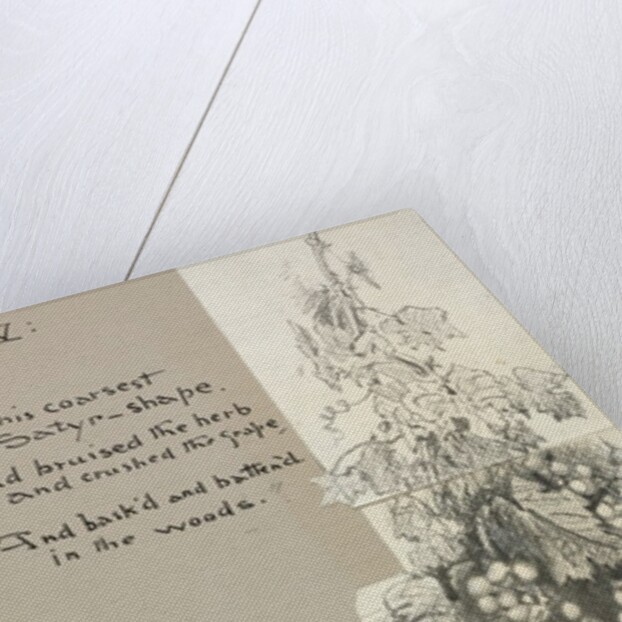 V:
his coarsest
Satyr-shape.
d bruised the herb
and crushed the grape,
And bask'd and batten'd
in the woods."